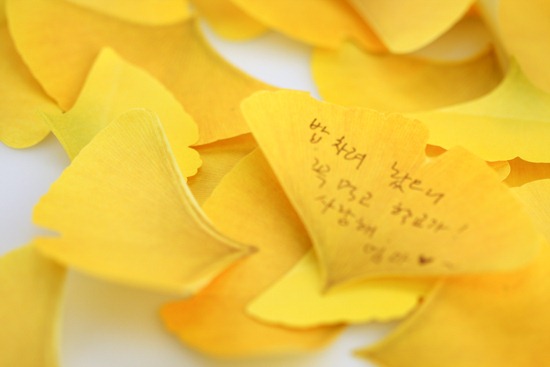 밥 차려 놨으니
꼭 먹고 학교가!
사랑해
엄마 ♥ ~